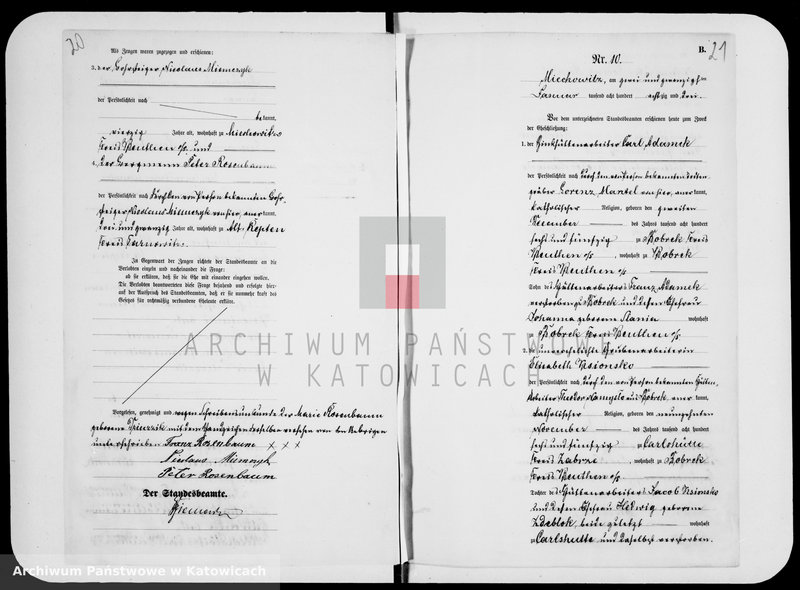 20
Als Zeugen waren zugezogen und erschienen:
3. der Nicolaus Miemczyk
der Persönlichkeit nach
bekannt,
vierzig Jahre alt, wohnhaft zu Miechowitz
Kreis Beuthen o/s und
4. der Bergmann Peter Rosenbaum
der Persönlichkeit nach durch den von Person bekannten
Nicolaus Miemczyk von hier, anerkannt,
drei und zwanzig Jahre alt, wohnhaft zu Alt Repten
Kreis Tarnowitz
In Gegenwart der Zeugen richtete der Standesbeamte an die
Verlobten einzeln und nacheinander die Frage:
ob sie erklären, daß sie die Ehe mit einander eingehen wollen.
Die Verlobten beantworteten diese Frage bejahend und erfolgte hier-
auf der Ausspruch des Standesbeamten, daß er sie nunmehr kraft des
Gesetzes für rechtmäßig verbundene Eheleute erkläre.
Vorgelesen, genehmigt und wegen Schreibensunkunde der Marie Rosenbaum
geborene mit dem Handzeichen derselben versehen von den Uebrigen
unterschrieben Franz Rosenbaum × × ×
Nicolaus Miemczyk
Peter Rosenbaum
Der Standesbeamte.
B.
21
Nr. 10.
Miechowitz, am zwei und zwanzigsten
Januar tausend acht hundert achtzig und drei.
Vor dem unterzeichneten Standesbeamten erschienen heute zum Zweck
der Eheschließung:
1. der Zinkhüttenarbeiter Carl Adamek
der Persönlichkeit nach durch den von Person bekannten
Lorenz Mantel von hier, anerkannt,
katholischer Religion, geboren den zweiten
Dezember des Jahres tausend acht hundert
sechs und fünfzig zu Bobrek Kreis
Beuthen o/s, wohnhaft zu Bobrek
Kreis Beuthen o/s
Sohn des Hüttenarbeiters Franz Adamek
verstorben zu Bobrek und dessen Ehefrau
Johanna geborene Kania wohnhaft
zu Bobrek Kreis Beuthen o/s
2. die unverehelichte Grubenarbeiterin
Elisabeth
der Persönlichkeit nach durch den von Person bekannten Hütten-
arbeiter Theodor aus Bobrek, anerkannt,
katholischer Religion, geboren den neunzehnten
November des Jahres tausend acht hundert
sechs und fünfzig zu Carlshütte
Kreis Zabrze, wohnhaft zu Bobrek
Kreis Beuthen o/s
Tochter des Hüttenarbeiters Jacob
und dessen Ehefrau Hedwig geborene
beide zuletzt wohnhaft
zu Carlshütte und daselbst verstorben.
ARCHIWUM PAŃSTWOWE
W KATOWICACH
Archiwum Państwowe w Katowicach